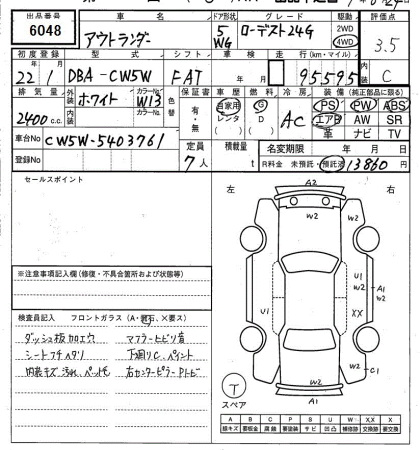 出品番号 車名 ドア形状 グレード 駆動 評価点
6048 アウトランダー 5 WG ローデスト24G 2WD 4WD 3.5
初度登録 型式 シフト 車検 走行(km・マイル) 内装
22年1月 DBA-CW5W FAT 年 月 95595 C
排気量 外装 ホワイト カラーNo W13 色替 保証書 車歴 燃料 冷房 装備(純正部品に限る)
2400c.c. 内装 カラーNo 有・無 自家用 レンタ G D AC PS PW ABS
エアB AW SR
革 ナビ TV
車台No CW5W-5403761 定員 積載量 名変期限 年 月 日
登録No 7人 t R料金 未預託・預託済 13860円
セールスポイント
左 右
A2
W2
W2 W2
U1 W2 A1 W2
U1 XX
W2
W2 C1
A1
T
スペア
※注意事項記入欄(修復・不具合箇所および状態等)
検査員記入 フロントガラス(A・飛石、×要ス)
ダッシュ板加工穴 マフラーヒビリ音
シートコゲ ヘタリ 下廻りC、ペイント
内装キズ汚れ、ペットモ 右センターピラーPトビ
A B C P S U W X XX
線キズ 要板金 腐 要塗装 サビ 凹凸 補修跡 要交換 交換跡